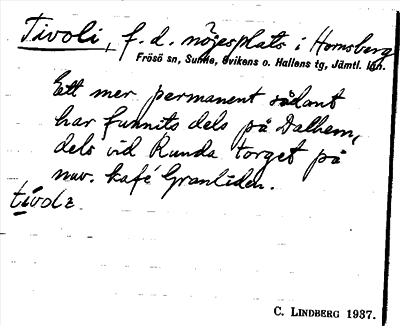 Tivoli, f. d. nöjesplats i Hornsberg
Frösö sn, Sunne, Ovikens o. Hallens tg, Jämtl. län.
Ett mer permanent sådant
har funnits dels på Dalhem,
dels vid Runda torget på
nuv. kafé Granliden.
tívolɪ.
C. LINDBERG 1937.